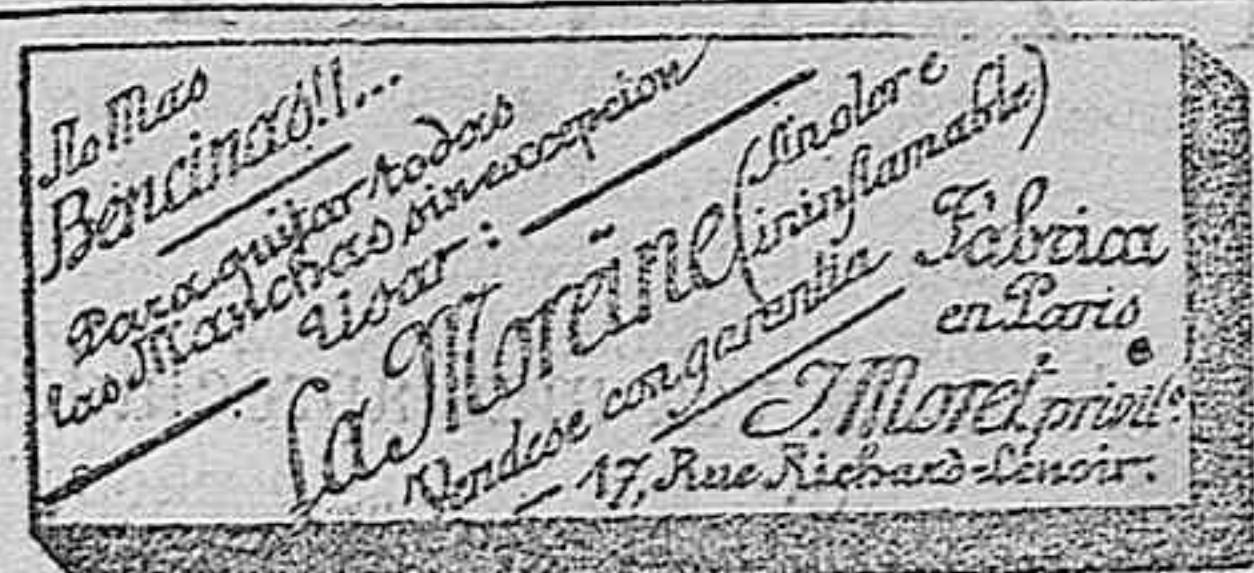 No Mas
Bencinas!!...
Para quitar todas
las Manchas sin excepcion
Usar:
La Moreïne
(sin olor e
ininflamable)
Vendese con garantia
Fabrica
en Paris
J. Morel, privil.º
17, Rue Richard-Lenoir.